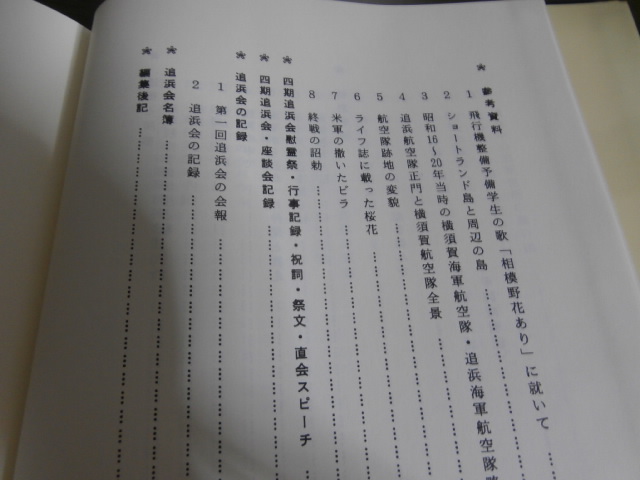 ★ 参考資料
1 飛行機整備予備学生の歌「相模野花あり」に就いて……
2 ショートランド島と周辺の島……
3 昭和16～20年当時の横須賀海軍航空隊・追浜海軍航空隊
4 追浜航空隊正門と横須賀航空隊全景
5 航空隊跡地の変貌……
6 ライフ誌に載った桜花……
7 米軍の撒いたビラ……
8 終戦の詔勅……
★ 四期追浜会慰霊祭・行事記録・祝詞・祭文・直会スピーチ
★ 四期追浜会・座談会記録……
★ 追浜会の記録
1 第一回追浜会の会報……
2 追浜会の記録……
★ 追浜会名簿……
★ 編集後記……